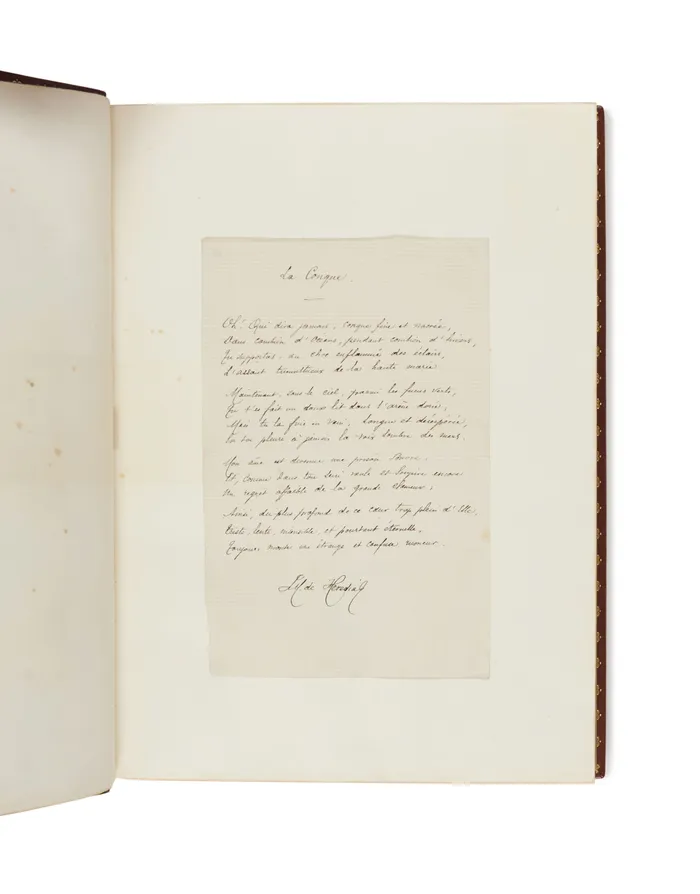 La Conque.
Oh! Qui dira jamais, conque fine et nacrée,
Dans combien d'Océans, pendant combien d'hivers,
Tu supportas, au choc enflammé des éclairs,
L'assaut tumultueux de la haute marée
Maintenant, sous le ciel, parmi les fucus verts,
Tu t'es fait un doux lit dans l'arène dorée,
Mais tu la fuis en vain; Longue et désespérée,
En toi pleure à jamais la voix sombre des mers.
Mon âme est devenue une prison sonore.
Et, comme dans ton sein roule et soupire encore
Un regret affaibli de la grande clameur;
Ainsi, du plus profond de ce cœur trop plein d'Elle,
Triste, lente, insensible, et pourtant éternelle,
Toujours monte une étrange et confuse rumeur.
J M de Heredia